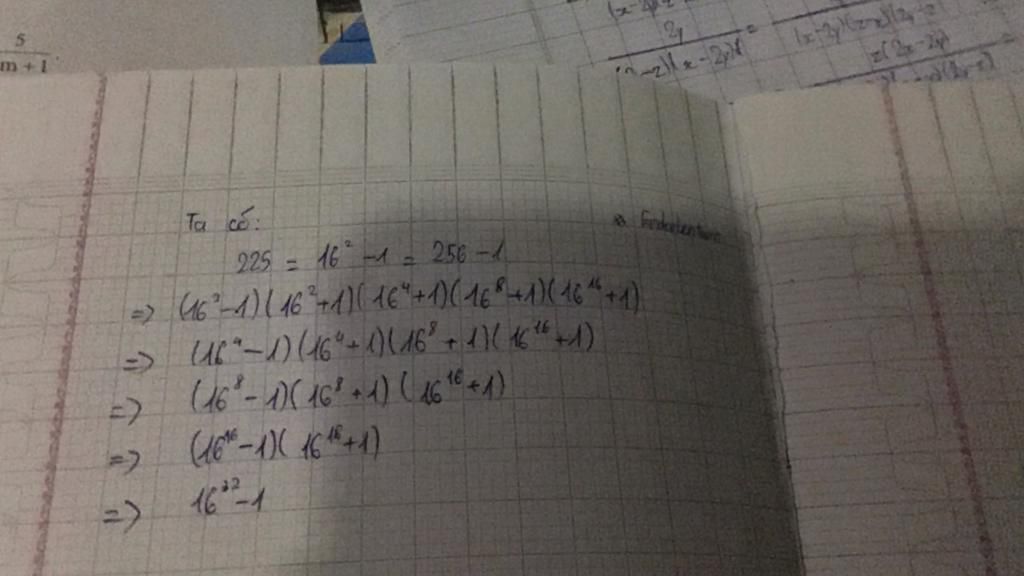 5
m + 1
(x - 2y)(x - z)(2y - z)
2y
z(2x - 2y)
Ta có:
225 = 16² - 1 = 256 - 1
=> (16² - 1)(16² + 1)(16⁴ + 1)(16⁸ + 1)(16¹⁶ + 1)
=> (16⁴ - 1)(16⁴ + 1)(16⁸ + 1)(16¹⁶ + 1)
=> (16⁸ - 1)(16⁸ + 1)(16¹⁶ + 1)
=> (16¹⁶ - 1)(16¹⁶ + 1)
=> 16³² - 1